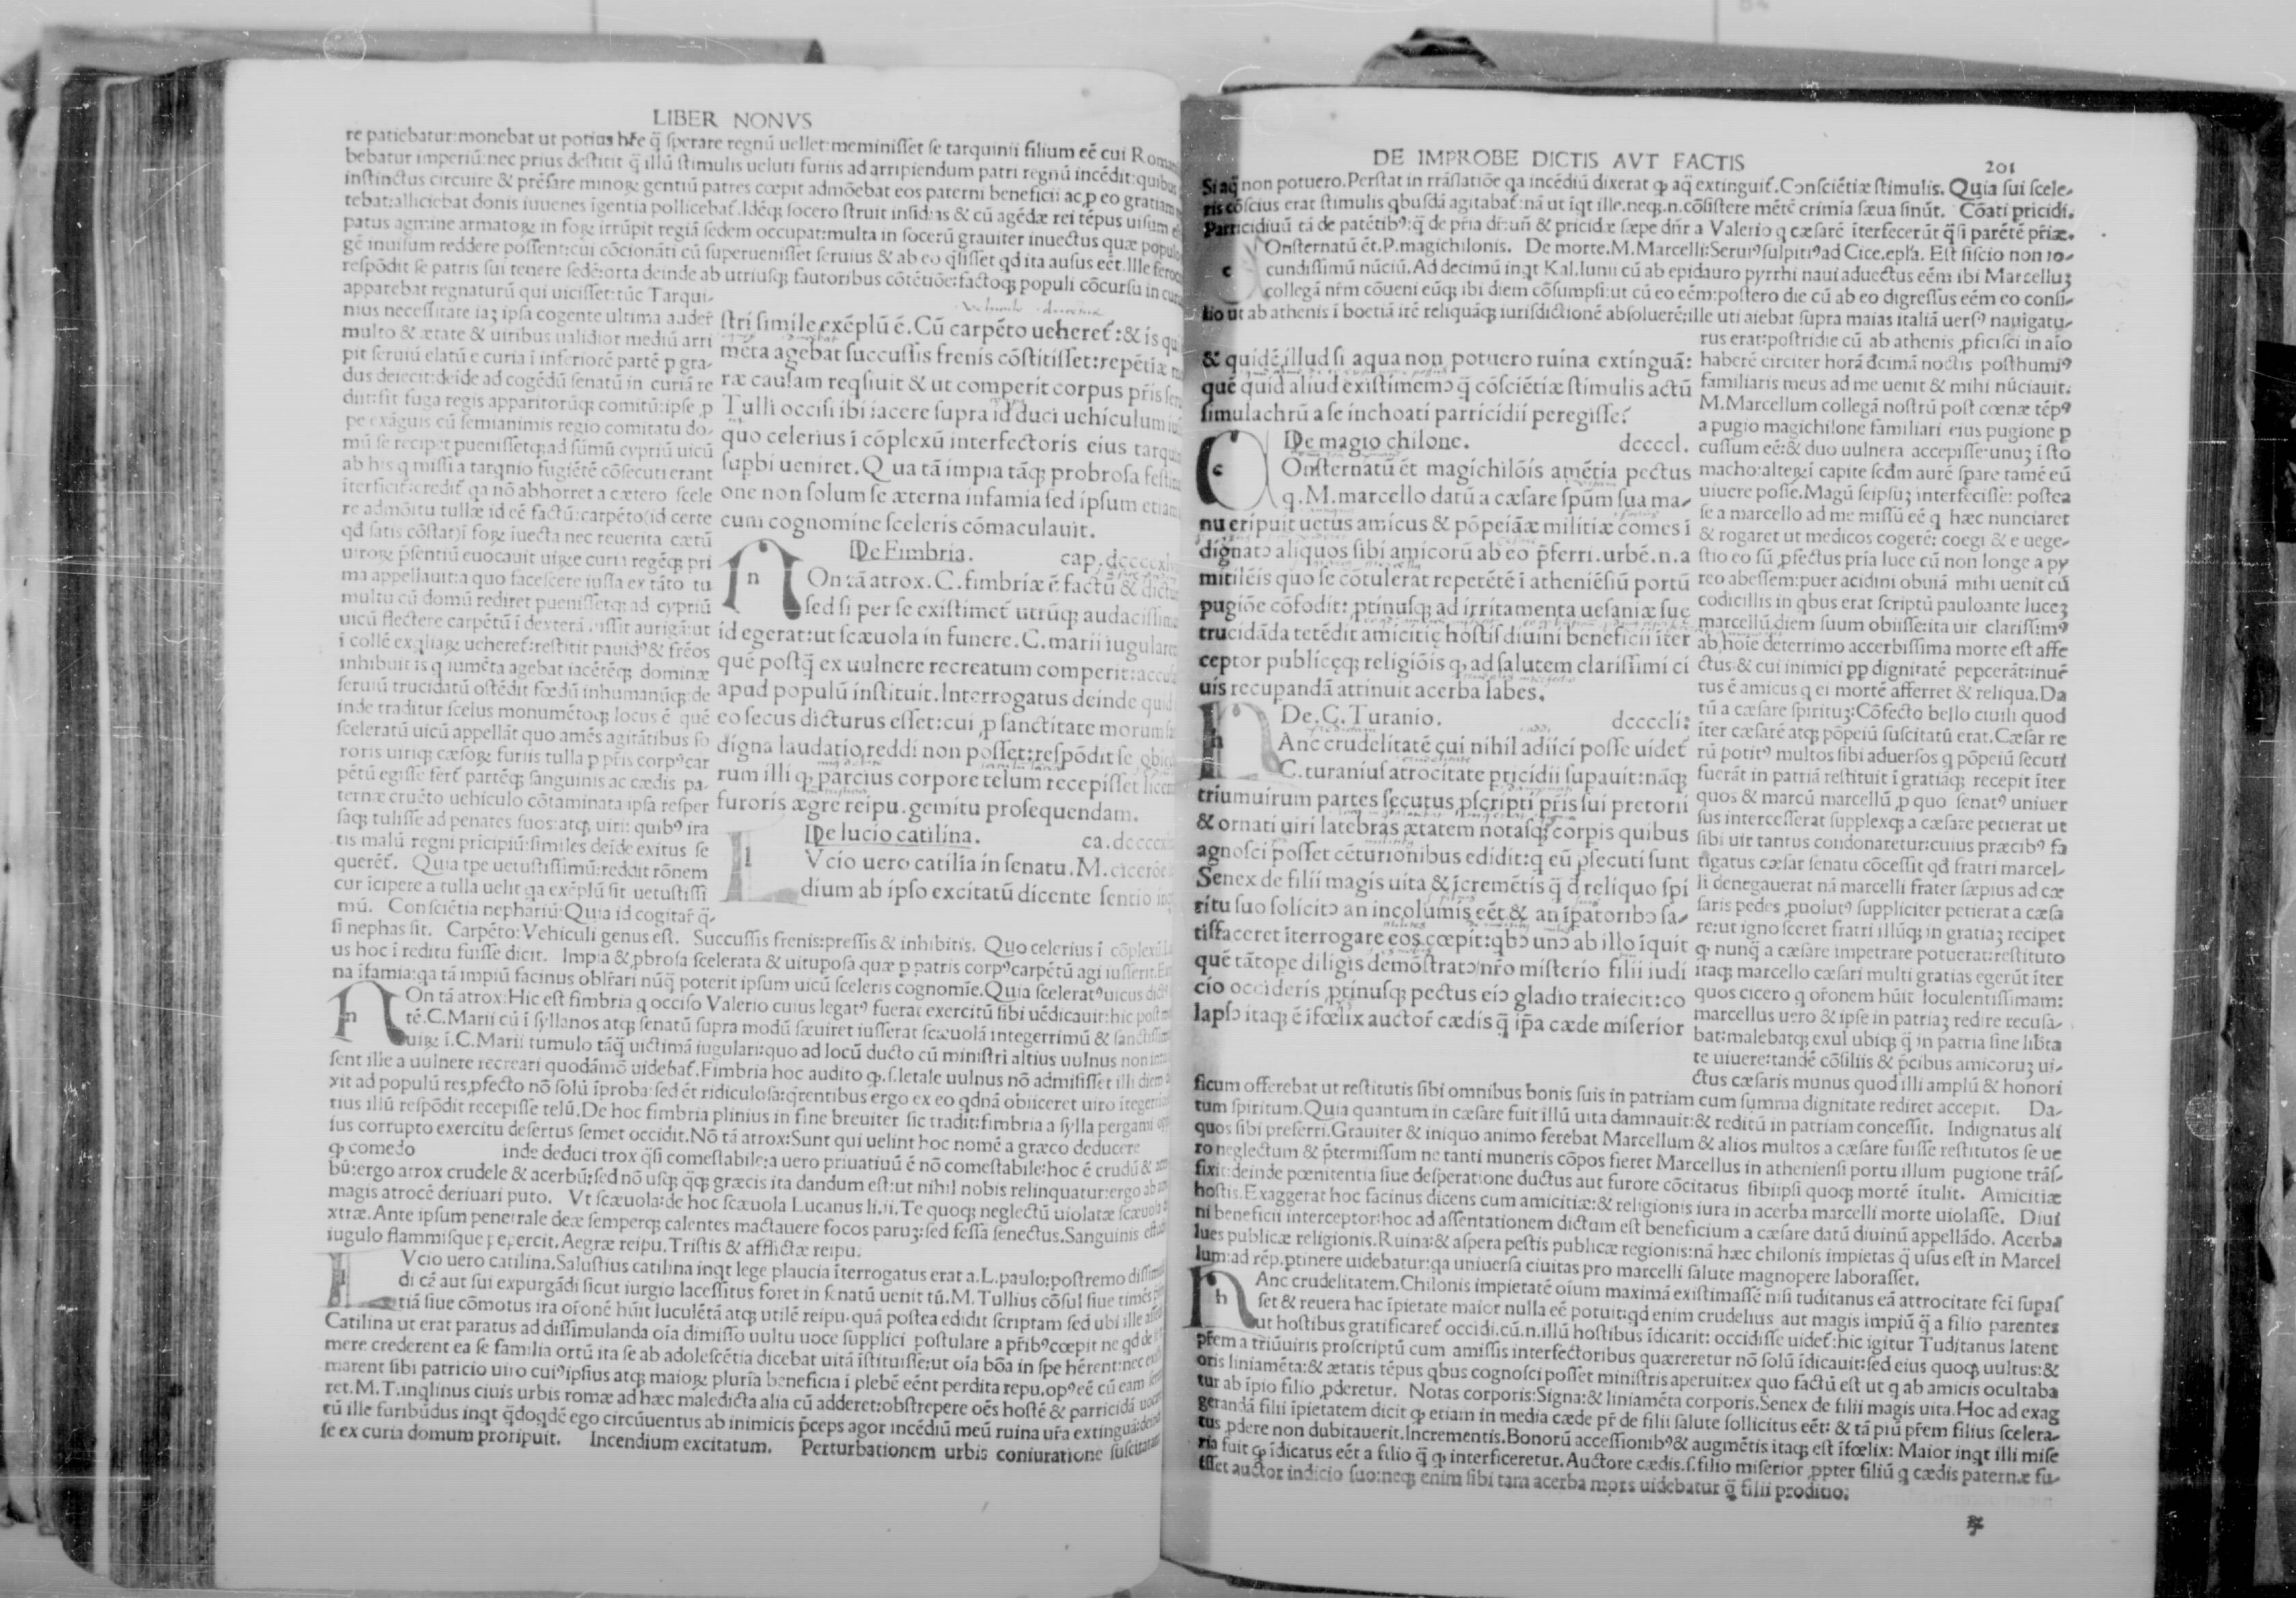 LIBER NONVS
re patiebatur: monebat ut potius hr̃e q̃ sperare regnũ uellet: meminisset se tarquinii filium eẽ cui Roman
bebatur imperiũ: nec prius destitit q̃ illũ stimulis ueluti furiis ad arripiendum patri regnũ incẽdit: quibus
instinctus circuire & prẽsare minoꝝ gentiũ patres cœpit admõebat eos paterni beneficii ac ꝓ eo gratiam
tebat: alliciebat donis iuuenes ĩgentia pollicebat̃. Idẽqꝫ socero struit insidias & cũ agẽdæ rei tẽpus uisum
patus agmine armatoꝝ in foꝝ irrũpit regiã sedem occupat: multa in socerũ grauiter inuectus quæ populo
gẽ inuisum reddere possent: cui cõcionãti cũ superuenisset seruius & ab eo q̃sisset qd ita ausus eẽt. Ille feroc
respõdit se patris sui tenere sedẽ: orta deinde ab utriusqꝫ fautoribus cõtẽtiõe: factoqꝫ populi cõcursu in cur
apparebat regnaturũ qui uicisset: tũc Tarqui-
nius necessitate iaꝫ ipsa cogente ultima auder̃
multo & ætate & uiribus ualidior mediũ arri
pit seruiũ elatũ e curia ĩ inferiorẽ partẽ ꝑ gra-
dus deiecit: deĩde ad cogẽdũ senatũ in curiã re
diit: fit fuga regis apparitorũqꝫ comitũ: ipse ꝓ
pe exãguis cũ semianimis regio comitatu do-
mũ se recipet ꝑuenissetqꝫ ad sũmũ cypriũ uicũ
ab his q missi a tarqnio fugiẽtẽ cõsecuti erant
ĩterficit̃: credit̃ qa nõ abhorret a cætero scele
re admõitu tullæ id eẽ factũ: carpẽto (id certe
qd satis cõstat) ĩ foꝝ iuecta nec reuerita cætũ
uiroꝝ p̃sentiũ euocauit uiꝝ e curia regẽqꝫ pri
ma appellauit: a quo facescere iussa ex tãto tu
multu cũ domũ rediret ꝑuenissetqꝫ ad cypriũ
uicũ flectere carpẽtũ ĩ dexterã iussit aurigã: ut
ĩ collẽ exqliaꝝ ueheret̃: restitit pauidꝰ & frẽos
inhibuit is q iumẽta agebat iacẽtẽqꝫ dominæ
seruiũ trucidatũ ostẽdit fœdũ inhumanũqꝫ: de
inde traditur scelus monumẽtoqꝫ locus ẽ quẽ
sceleratũ uicũ appellãt quo amẽs agitãtibus so
roris uiriqꝫ cæsoꝝ furiis tulla ꝑ pr̃is corpꝰ car
pẽtũ egisse fert̃ partẽqꝫ sanguinis ac cædis pa-
ternæ cruẽto uehiculo cõtaminata ipsa resper
saqꝫ tulisse ad penates suos: atqꝫ uiri: quibꝰ ira
tis malũ regni pricipiũ: similes deĩde exitus se
querẽt̃. Quia tpe uetustissimũ: reddit rõnem
cur ĩcipere a tulla uelit qa exẽplũ sit uetustissi
mũ. Consciẽtia nephariũ: Quia id cogitar̃ q̃-
si nephas sit. Carpẽto: Vehiculi genus est. Succussis frenis: pressis & inhibitis. Quo celerius ĩ cõplexũ.
us hoc ĩ reditu fuisse dicit. Impia & ꝓbrosa scelerata & uituposa quæ ꝑ patris corpꝰ carpẽtũ agi iusserit.
na ĩfamia: qa tã impiũ facinus oblr̃ari nũq̃ poterit ipsum uicũ sceleris cognomĩe. Quia sceleratꝰ uicus
stri simile exẽplũ ẽ. Cũ carpẽto ueheret̃: & is qui
mẽta agebat succussis frenis cõstitisset: repẽtiæ
ræ causam reqsiuit & ut comperit corpus pr̃is
Tulli occisi ibi iacere supra id duci uehiculum
quo celerius ĩ cõplexũ interfectoris eius tarqui
supbi ueniret. Qua tã impia tãqꝫ probrosa festi
one non solum se æterna infamia sed ipsum etiam
cum cognomine sceleris cõmaculauit.
De Fimbria. cap. dccccxl
n On tã atrox. C. fimbriæ ẽ factũ & dictu
sed si per se existimet̃ utrũqꝫ audacissim
id egerat: ut scæuola in funere. C. marii iugulare
quẽ postq̃ ex uulnere recreatum comperit: accu
apud populũ instituit. Interrogatus deinde quid
eo secus dicturus esset: cui ꝓ sanctitate morum
digna laudatio reddi non posset: respõdit se obi
rum illi qꝫ parcius corpore telum recepisset licen
furoris ægre reipu. gemitu prosequendam.
De lucio catilina. ca. dcccc
l Vcio uero catilĩa in senatu. M. cicerõe
dium ab ipso excitatũ dicente sentio
n On tã atrox: Hic est fimbria q occiso Valerio cuius legatꝰ fuerat exercitũ sibi uẽdicauit: hic post
tẽ. C. Marii cũ ĩ syllanos atqꝫ senatũ supra modũ sæuiret iusserat scæuolã integerrimũ & sanctissim
uiꝝ ĩ. C. Marii tumulo tãq̃ uictimã iugulari: quo ad locũ ducto cũ ministri altius uulnus non
sent ille a uulnere recreari quodãmõ uidebat̃. Fimbria hoc audito qꝫ .s. letale uulnus nõ admisisset illi diem
xit ad populũ res ꝓfecto nõ solũ ĩproba: sed ẽt ridiculosa: q̃rentibus ergo ex eo qdnã obiiceret uiro ĩtegerri
rius illũ respõdit recepisse telũ. De hoc fimbria plinius in fine breuiter sic tradit: fimbria a sylla pergami
sus corrupto exercitu desertus semet occidit. Nõ tã atrox: Sunt qui uelint hoc nomẽ a græco deducere
qꝫ comedo inde deduci trox q̃si comestabile: a uero priuatiuũ ẽ nõ comestabile: hoc ẽ crudũ &
bũ: ergo atrox crudele & acerbũ: sed nõ usqꝫ q̃qꝫ græcis ita dandum est: ut nihil nobis relinquatur: ergo ab
magis atrocẽ deriuari puto. Vt scæuola: de hoc scæuola Lucanus li.ii. Te quoqꝫ neglectũ uiolatæ scæuola
xtræ. Ante ipsum penetrale deæ semperqꝫ calentes mactauere focos paruꝫ: sed fessa senectus. Sanguinis
iugulo flammisque pepercit. Aegræ reipu. Tristis & afflictæ reipu.
l Vcio uero catilina. Salustius catilina inqt lege plaucia ĩterrogatus erat a. L. paulo: postremo dissimu
di cẽ aut sui expurgãdi sicut iurgio lacessitus foret in senatũ uenit tũ. M. Tullius cõsul siue timẽs
tiã siue cõmotus ira or̃onẽ hũit luculẽtã atqꝫ utilẽ reipu. quã postea edidit scriptam sed ubi ille
Catilina ut erat paratus ad dissimulanda oĩa dimisso uultu uoce supplici postulare a pr̃ibꝰ cœpit ne qd de
mere crederent ea se familia ortũ ita se ab adolescẽtia dicebat uitã ĩstituisse: ut oĩa bõa in spe hẽrent: nec
marent sibi patricio uiro cuiꝰ ipsius atqꝫ maioꝝ plurĩa beneficia ĩ plebẽ eẽnt perdita repu. opꝰ eẽ cũ eam
ret. M. T. inqlinus ciuis urbis romæ ad hæc maledicta alia cũ adderet: obstrepere oẽs hostẽ & parricidã
tũ ille furibũdus inqt q̃doqdẽ ego circũuentus ab inimicis p̃ceps agor incẽdiũ meũ ruina ur̃a extinguã:
se ex curia domum proripuit. Incendium excitatum. Perturbationem urbis coniuratione
DE IMPROBE DICTIS AVT FACTIS 201
Si aq̃ non potuero. Perstat in trãslatiõe qa incẽdiũ dixerat qꝫ aq̃ extinguit̃. Consciẽtiæ stimulis. Quia sui scele-
ris cõscius erat stimulis qbusdã agitabat̃: nã ut ĩqt ille. neqꝫ .n. cõsistere mẽtẽ crimĩa sæua sinũt. Cõati pricidi.
Parricidiuũ tã de patẽtibꝰ: q̃ de pr̃ia dr̃: uñ & pricidæ sæpe dñr a Valerio q cæsarẽ ĩterfecerũt q̃si parẽtẽ pr̃iæ.
c Onsternatũ ẽt. P. magichilonis. De morte. M. Marcelli: Seruiꝰ sulpitiꝰ ad Cice. epl̃a. Est siscio non io-
cundissimũ nũciũ. Ad decimũ inqt Kal. Iunii cũ ab epidauro pyrrhi naui aduectus eẽm ibi Marcelluꝫ
collegã nr̃m cõueni eũqꝫ ibi diem cõsumpsi: ut cũ eo eẽm: postero die cũ ab eo digressus eẽm eo consi-
lio ut ab athenis ĩ boetiã irẽ reliquãqꝫ iurisdictionẽ absoluerẽ: ille uti aiebat supra maias italiã uersꝰ nauigatu-
& quidẽ illud si aqua non potuero ruina extinguã:
quẽ quid aliud existimemꝰ q̃ cõsciẽtiæ stimulis actũ
simulachrũ a se inchoati parricidii peregisse?
De magio chilone. dccccl.
c Onsternatũ ẽt magichilõis amẽtia pectus
q. M. marcello datũ a cæsare spũm sua ma-
nu eripuit uetus amicus & põpeiãæ militiæ comes ĩ
dignatꝰ aliquos sibi amicorũ ab eo p̃ferri. urbẽ .n. a
mitilẽis quo se cõtulerat repetẽtẽ ĩ atheniẽsiũ portũ
pugiõe cõfodit: ꝓtinusqꝫ ad irritamenta uesaniæ sue
trucidãda tetẽdit amicitię hostis diuini beneficii ĩter
ceptor publicęqꝫ religiõis qꝫ ad salutem clarissimi ci
uis recupandã attinuit acerba labes.
De. C. Turanio. dccccli:
h Anc crudelitatẽ cui nihil adiici posse uidet̃
C. turanius atrocitate pricidii supauit: nãqꝫ
triumuirum partes secutus ꝓscripti pr̃is sui pretorii
& ornati uiri latebras ætatem notasqꝫ corpis quibus
agnosci posset cẽturionibus edidit: q eũ ꝓsecuti sunt
Senex de filii magis uita & ĩcremẽtis q̃ d̃ reliquo spi
ritu suo solicitꝰ an incolumis eẽt & an ĩpatoribꝰ sa-
tisfaceret ĩterrogare eos cœpit: qbꝰ unꝰ ab illo ĩquit
quẽ tãtope diligis demõstratꝰ nr̃o misterio filii iudi
cio occideris ꝓtinusqꝫ pectus eiꝰ gladio traiecit: co
lapsꝰ itaqꝫ ẽ ĩfœlix auctor̃ cædis q̃ ip̃a cæde miserior
rus erat: postridie cũ ab athenis ꝓficisci in aĩo
haberẽ circiter horã d̃cimã noctis posthumiꝰ
familiaris meus ad me uenit & mihi nũciauit:
M. Marcellum collegã nostrũ post cœnæ tẽpꝰ
a pugio magichilone familiari eius pugione ꝑ
cussum eẽ: & duo uulnera accepisse: unuꝫ ĩ sto
macho: alteꝝ ĩ capite scd̃m aurẽ spare tamẽ eũ
uiuere posse. Magũ seipsuꝫ interfecisse: postea
se a marcello ad me missũ eẽ q hæc nunciaret
& rogaret ut medicos cogerẽ: coegi & e uege-
stio eo sũ ꝓfectus pr̃ia luce cũ non longe a py
reo abessem: puer acidini obuiã mihi uenit cũ
codicillis in qbus erat scriptũ pauloante luceꝫ
marcellũ diem suum obiisse: ita uir clarissimꝰ
ab hoĩe deterrimo accerbissima morte est affe
ctus & cui inimici ꝓp dignitatẽ pepcerãt: inuẽ
tus ẽ amicus q ei mortẽ afferret & reliqua. Da
tũ a cæsare spirituꝫ: Cõfecto bello ciuili quod
ĩter cæsarẽ atqꝫ põpeiũ suscitatũ erat. Cæsar re
rũ potitꝰ multos sibi aduersos q põpeiũ secuti
fuerãt in patriã restituit ĩ gratiãqꝫ recepit ĩter
quos & marcũ marcellũ ꝓ quo senatꝰ uniuer
sus intercesserat supplexqꝫ a cæsare petierat ut
sibi uir tantus condonaretur: cuius præcibꝰ fa
tigatus cæsar senatu cõcessit qd fratri marcel-
li denegauerat nã marcelli frater sæpius ad cæ
saris pedes ꝓuolutꝰ suppliciter petierat a cæsa
re: ut ignosceret fratri illũqꝫ in gratiaꝫ recipet
qꝫ nunq̃ a cæsare impetrare potuerat: restituto
itaqꝫ marcello cæsari multi gratias egerũt ĩter
quos cicero q or̃onem hũit loculentissimam:
marcellus uero & ipse in patriaꝫ redire recusa-
bat: malebatqꝫ exul ubiqꝫ q̃ in patria sine lib̃ta
te uiuere: tandẽ cõsiliis & p̃cibus amicoruꝫ ui-
ctus cæsaris munus quod illi amplũ & honori
ficum offerebat ut restitutis sibi omnibus bonis suis in patriam cum summa dignitate rediret accepit. Da-
tum spiritum. Quia quantum in cæsare fuit illũ uita damnauit: & reditũ in patriam concessit. Indignatus ali
quos sibi preferri. Grauiter & iniquo animo ferebat Marcellum & alios multos a cæsare fuisse restitutos se ue
ro neglectum & p̃termissum ne tanti muneris cõpos fieret Marcellus in atheniensi portu illum pugione trãs-
fixit: deinde pœnitentia siue desperatione ductus aut furore cõcitatus sibiipsi quoqꝫ mortẽ ĩtulit. Amicitiæ
hostis. Exaggerat hoc facinus dicens cum amicitiæ: & religionis iura in acerba marcelli morte uiolasse. Diui
ni beneficii interceptor: hoc ad assentationem dictum est beneficium a cæsare datũ diuinũ appellãdo. Acerba
lues publicæ religionis. Ruina: & aspera pestis publicæ regionis: nã hæc chilonis impietas q̃ usus est in Marcel
lum: ad rẽp. ꝑtinere uidebatur: qa uniuersa ciuitas pro marcelli salute magnopere laborasset.
h Anc crudelitatem. Chilonis impietatẽ oĩum maximã existimassẽ nisi tuditanus eã attrocitate fc̃i supas
set & reuera hac ĩpietate maior nulla eẽ potuit: qd enim crudelius aut magis impiũ q̃ a filio parentes
ut hostibus gratificaret̃ occidi. cũ .n. illũ hostibus ĩdicarit: occidisse uidet̃: hic igitur Tuditanus latent
pr̃em a triũuiris proscriptũ cum amissis interfectoribus quæreretur nõ solũ ĩdicauit: sed eius quoqꝫ uultus: &
oris liniamẽta: & ætatis tẽpus qbus cognosci posset ministris aperuit: ex quo factũ est ut q ab amicis ocultaba
tur ab ĩpio filio ꝓderetur. Notas corporis: Signa: & liniamẽta corporis. Senex de filii magis uita. Hoc ad exag
gerandã filii ĩpietatem dicit qꝫ etiam in media cæde pr̃ de filii salute sollicitus eẽt: & tã piũ pr̃em filius scelera-
tus ꝓdere non dubitauerit. Incrementis. Bonorũ accessionibꝰ & augmẽtis itaqꝫ est ĩfœlix: Maior inqt illi mise
ria fuit qꝫ ĩdicatus eẽt a filio q̃ qꝫ interficeretur. Auctore cædis .s. filio miserior ꝓpter filiũ q cædis paternæ fu-
isset auctor indicio suo: neqꝫ enim sibi tam acerba mors uidebatur q̃ filii proditio: